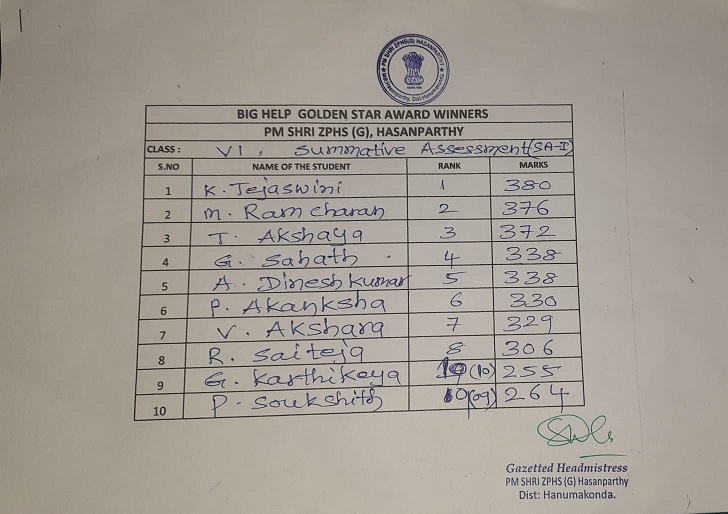 PM SHRI ZPHS(G) HASANPARTHY
Hasanparthy, Dist: Hanumakonda.
BIG HELP GOLDEN STAR AWARD WINNERS
PM SHRI ZPHS (G), HASANPARTHY
CLASS : VI, Summative Assessment(SA-I)
S.NO NAME OF THE STUDENT RANK MARKS
1 K. Tejaswini 1 380
2 M. Ram charan 2 376
3 T. Akshaya 3 372
4 G. Sahath 4 338
5 A. Dinesh kumar 5 338
6 P. Akanksha 6 330
7 V. Akshara 7 329
8 R. Saiteja 8 306
9 G. Karthikeya (10) 255
10 P. Sourkshith (09) 264
Gazetted Headmistress
PM SHRI ZPHS (G) Hasanparthy
Dist: Hanumakonda.